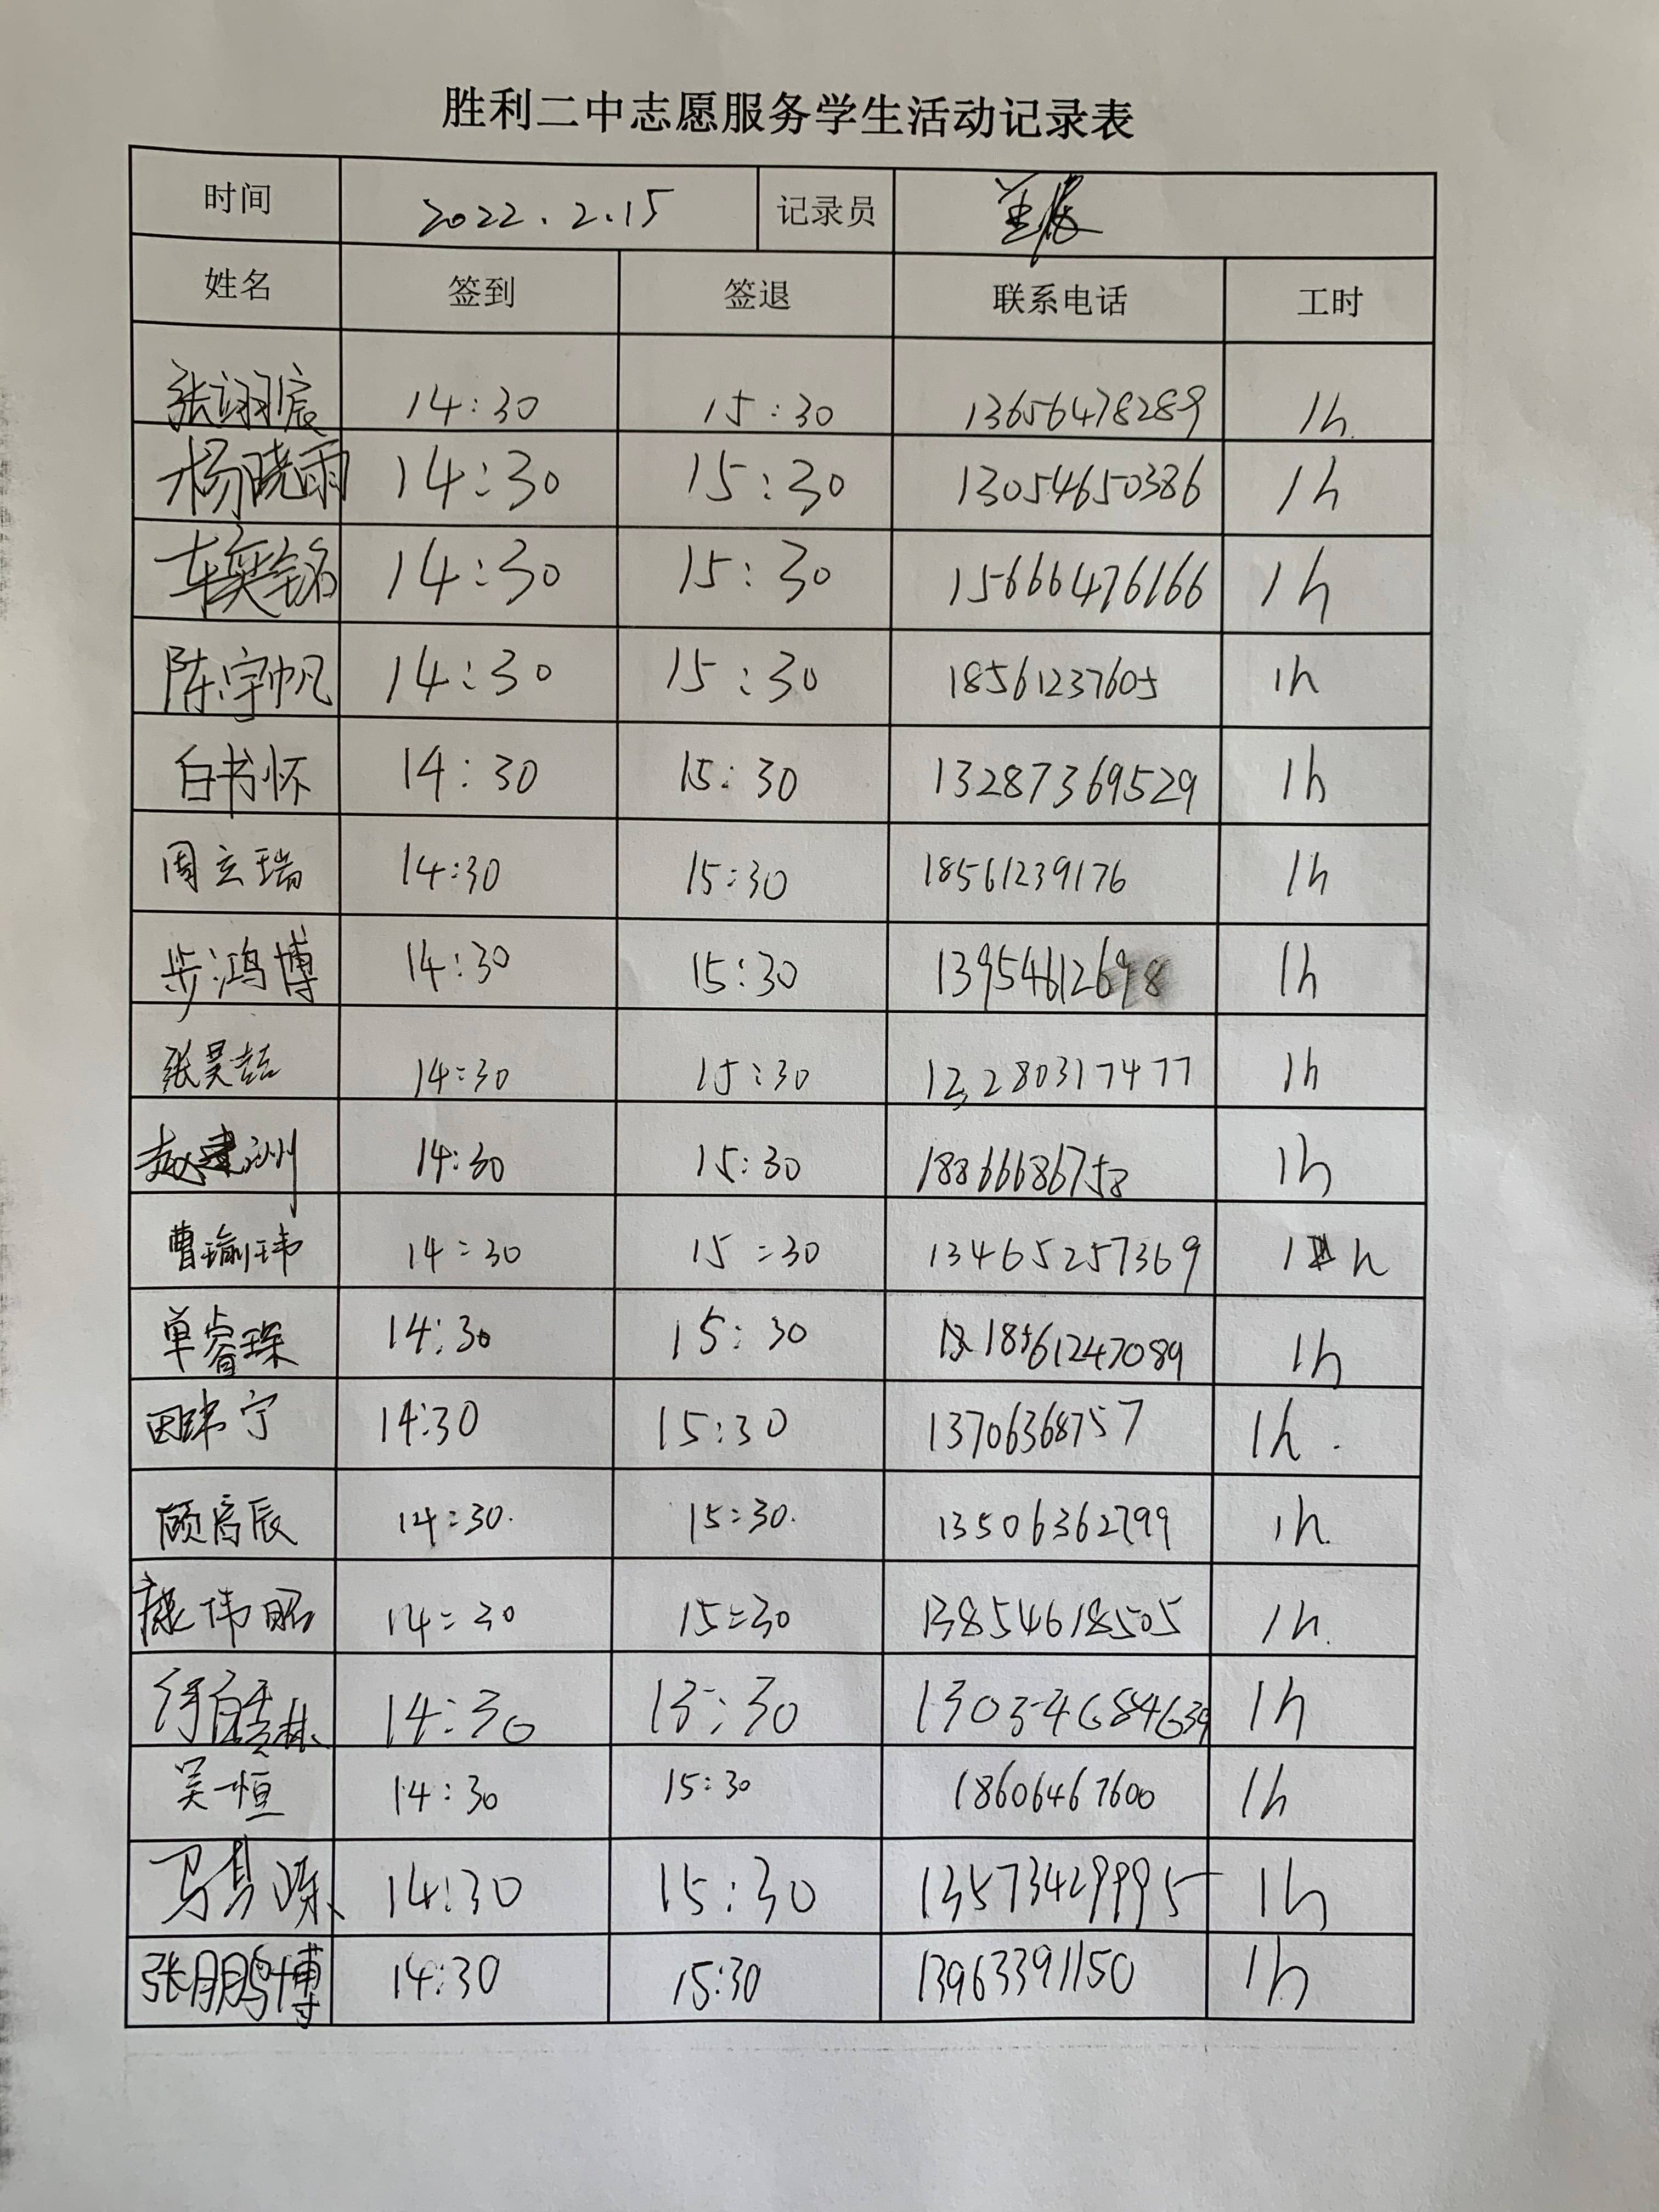 胜利二中志愿服务学生活动记录表
时间 2022.2.15 记录员
姓名 签到 签退 联系电话 工时
张翊宸 14:30 15:30 13656478289 1h.
杨晓雨 14:30 15:30 13054650386 1h
车奕铭 14:30 15:30 15666476166 1h
陈宇帆 14:30 15:30 18561237605 1h
白书怀 14:30 15:30 13287369529 1h
周立瑞 14:30 15:30 18561239176 1h
步鸿博 14:30 15:30 13954612698 1h
张昊喆 14:30 15:30 13280317477 1h
赵建洲 14:30 15:30 18866686758 1h
曹瑜玮 14:30 15:30 13465257369 1h
单睿琛 14:30 15:30 18561247089 1h
田玮宁 14:30 15:30 13706368757 1h.
顾容辰 14:30. 15:30. 13506362799 1h.
康伟昭 14:30 15:30 13854618505 1h.
14:30 15:30 13054684639 1h
吴一恒 14:30 15:30 18606467600 1h
14:30 15:30 13573429995 1h
张鹏博 14:30 15:30 13963391150 1h